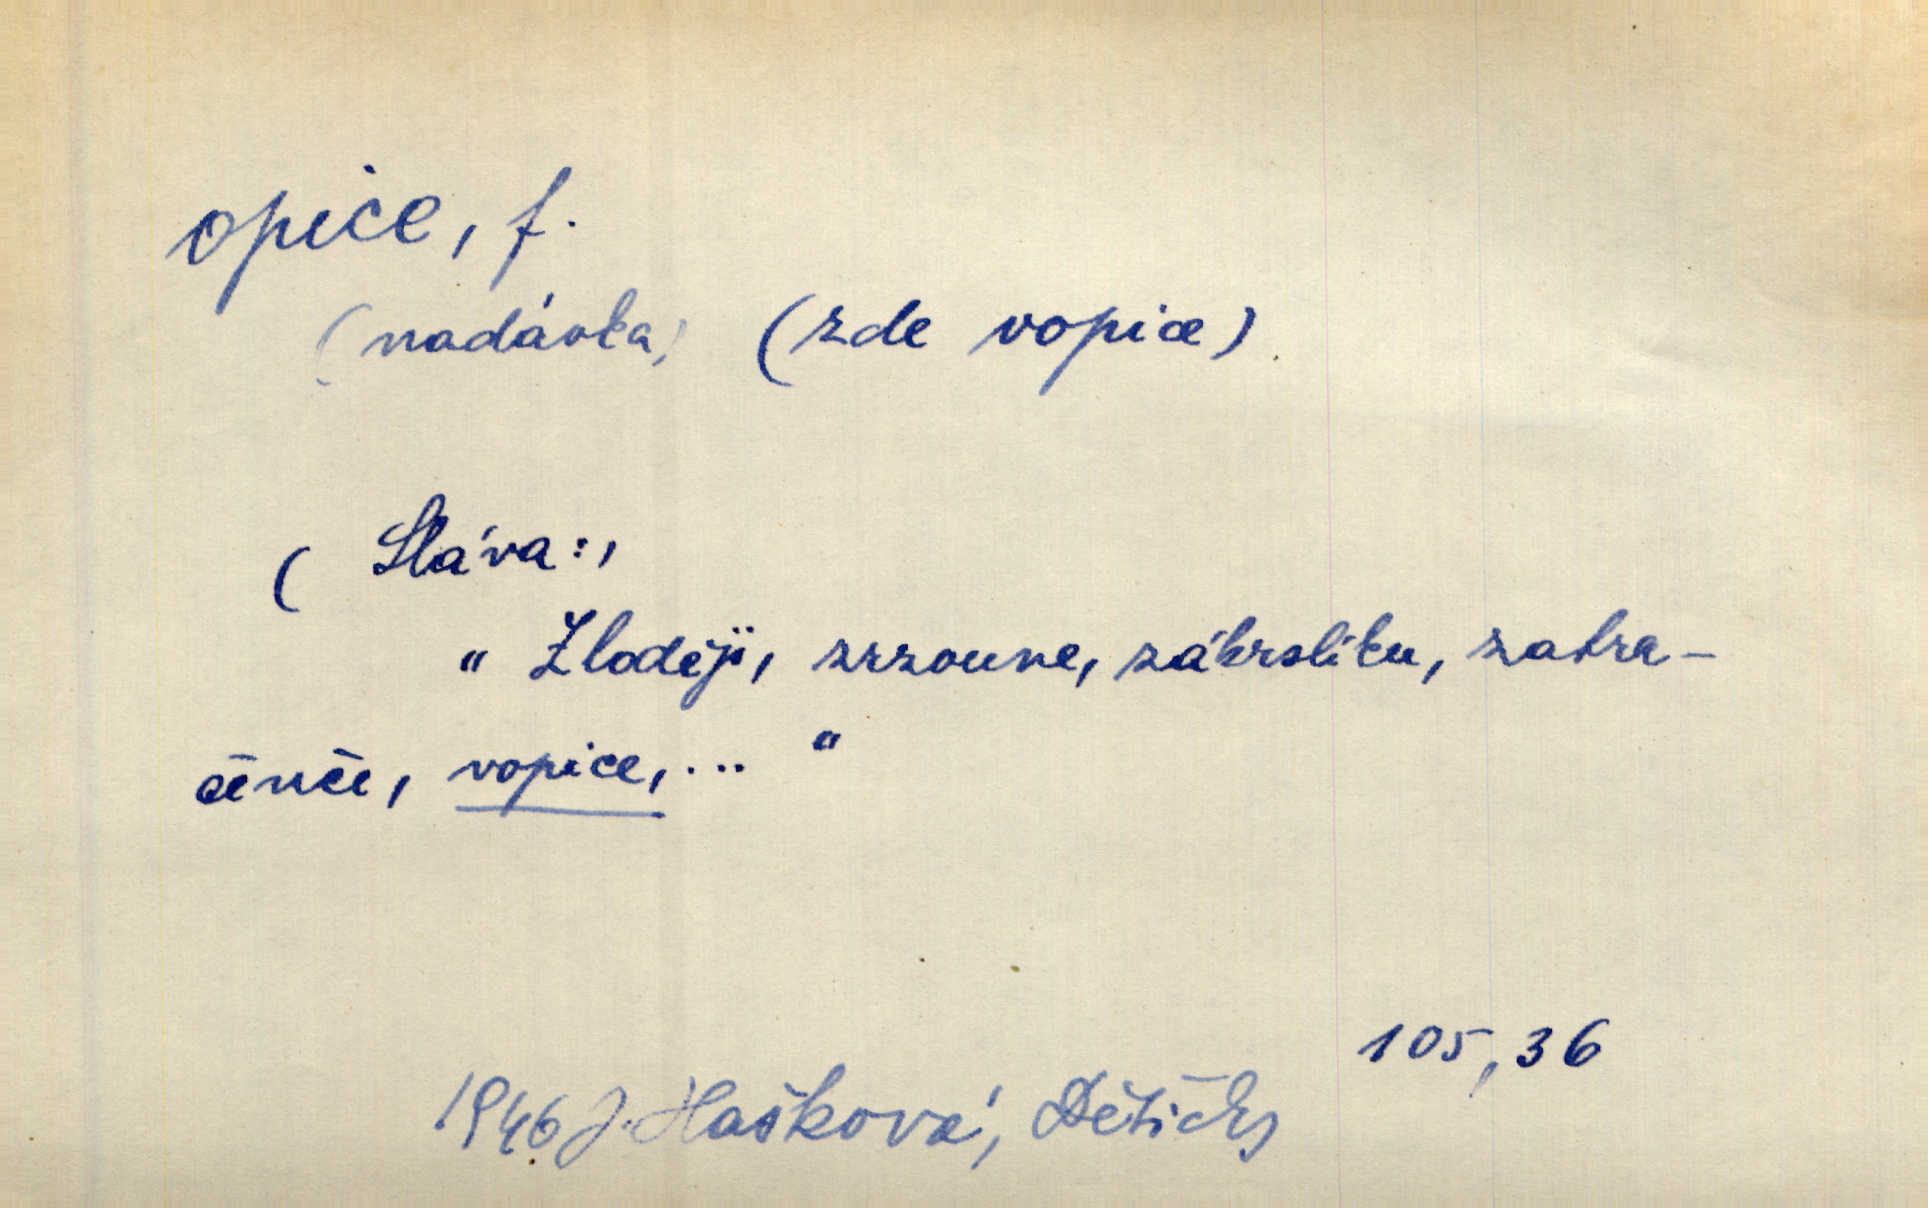 opice, f.
(nadávka) (zde vopice)
( Sláva:,
" Zloději, zrzoune, zákrslíku, zatra-
čenče, vopice, ... "
105, 36
1946 J. Hašková, Dětičky